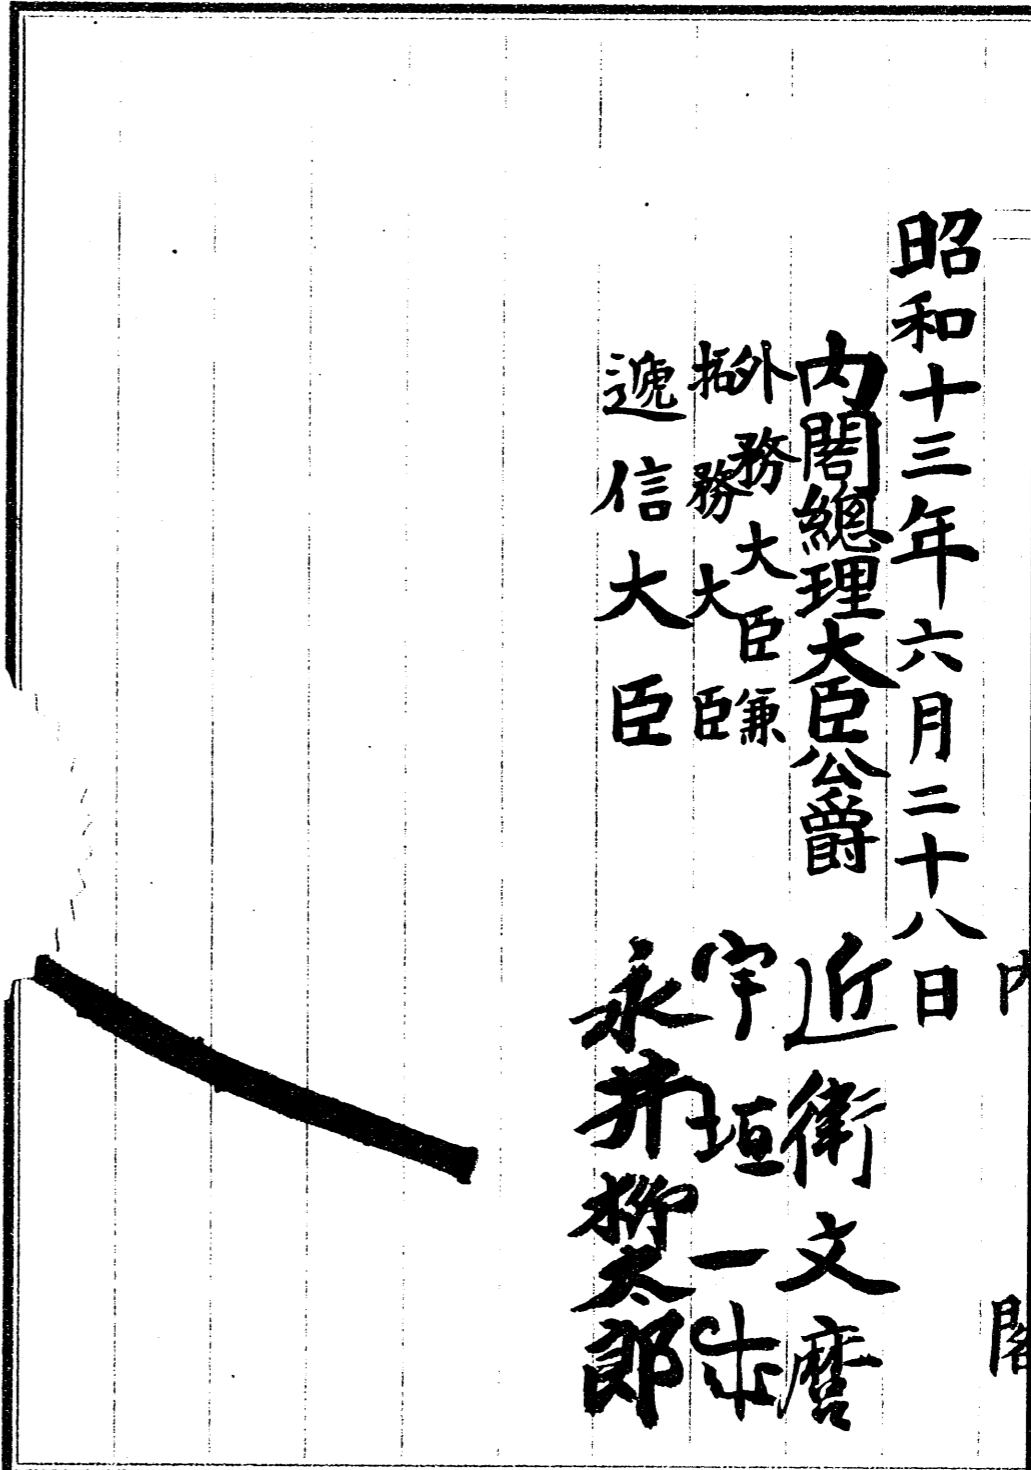 内閣
昭和十三年六月二十八日
内閣總理大臣公爵 近衛文麿
外務大臣兼
拓務大臣 宇垣一成
遞信大臣 永井柳太郎